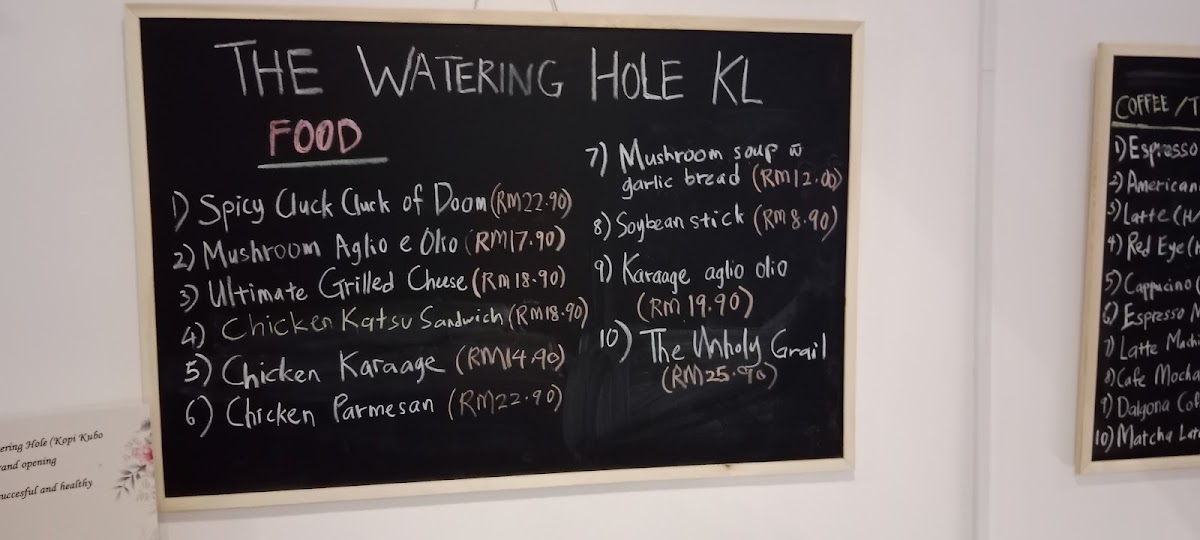 THE WATERING HOLE KL
FOOD
1) Spicy Cluck Cluck of Doom (RM22.90)
2) Mushroom Aglio e Olio (RM17.90)
3) Ultimate Grilled Cheese (RM18.90)
4) Chicken Katsu Sandwich (RM18.90)
5) Chicken Karaage (RM14.90)
6) Chicken Parmesan (RM22.90)
7) Mushroom soup w̄
garlic bread (RM12.00)
8) Soybean stick (RM8.90)
9) Karaage aglio olio
(RM19.90)
10) The Unholy Grail
(RM25.90)
COFFEE / T
1) Espresso
2) American
3) Latte (H
4) Red Eye (
5) Cappucino (
6) Espresso M
7) Latte Machi
8) Cafe Mocha
9) Dalgona Cof
10) Matcha Lat
ering Hole (Kopi Kubo
rand opening
uccesful and healthy